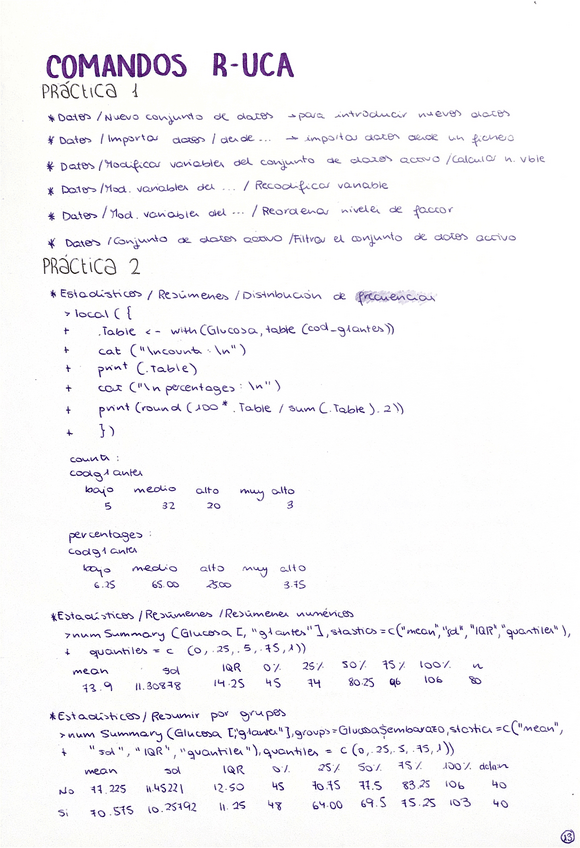 COMANDOS R-UCA
PRÁCTICA 1
* Datos / Nuevo conjunto de datos → para introducir nuevos datos
* Datos / Importar datos / desde ... → importar datos desde un fichero
* Datos / Modificar variables del conjunto de datos activo / Calcular n. vble
* Datos / Mod. variables del ... / Recodificar variable
* Datos / Mod. variables del ... / Reordenar niveles de factor
* Datos / Conjunto de datos activo / Filtrar el conjunto de datos activo
PRÁCTICA 2
* Estadísticos / Resúmenes / Distribución de frecuencias
> local ( {
+ .Table <- with (Glucosa, table (cod_g1antes))
+ cat ("\ncounts : \n")
+ print (.Table)
+ cat ("\n percentages : \n")
+ print (round (100 * .Table / sum (.Table). 2))
+ })
counts :
codg1antes
bajo medio alto muy alto
5 32 20 3
percentages :
codg1antes
bajo medio alto muy alto
6.25 65.00 2500 3.75
* Estadísticos / Resúmenes / Resúmenes numéricos
> num Summary (Glucosa [, "g1antes"], stastics = c("mean", "sd", "IQR", "quantiles"),
+ quantiles = c (0, .25, .5, .75, 1))
mean sd IQR 0% 25% 50% 75% 100% n
73.9 11.30878 14.25 45 74 80.25 106 80
* Estadísticos / Resumir por grupos
> num Summary (Glucosa [, "g1antes"], groups = Glucosa$embarazo, stastics = c("mean",
+ "sd", "IQR", "quantiles"), quantiles = c (0, .25, .5, .75, 1))
mean sd IQR 0% 25% 50% 75% 100% data:n
No 77.225 11.45221 12.50 45 70.75 77.5 83.25 106 40
Si 70.575 10.25792 11.25 48 64.00 69.5 75.25 103 40
13